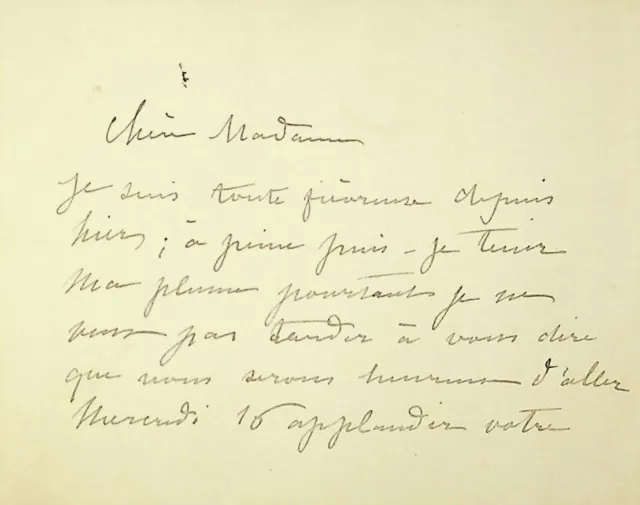 Chère Madame
Je suis toute fiévreuse depuis
hier ; à peine puis-je tenir
ma plume pourtant je ne
veux pas tarder à vous dire
que nous serons heureux d'aller
Mercredi 16 applaudir votre